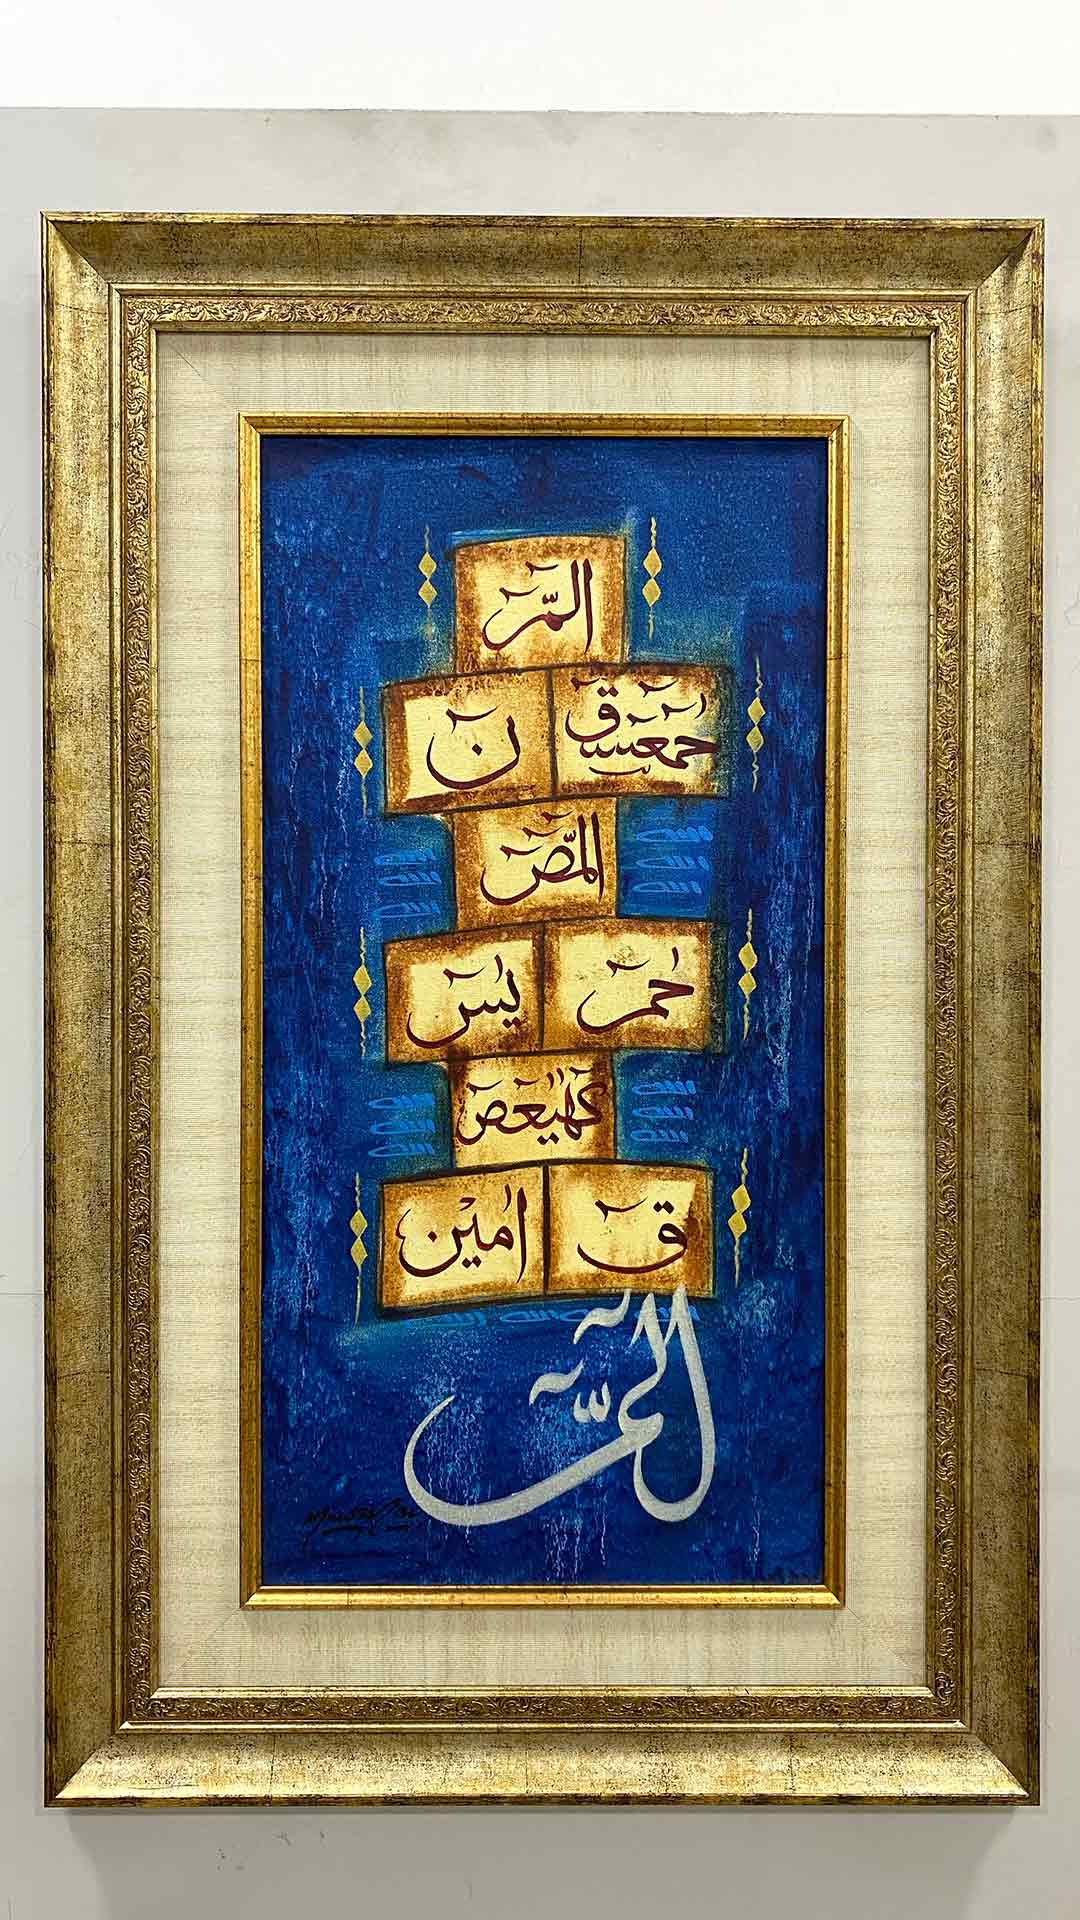 المّر
حمٓعٓسٓقٓ نٓ
المّصٓ
حٰمٓ يٰسٓ
كٓهٰيٰعٓصٓ
قٓ اٰمين
المّٓ